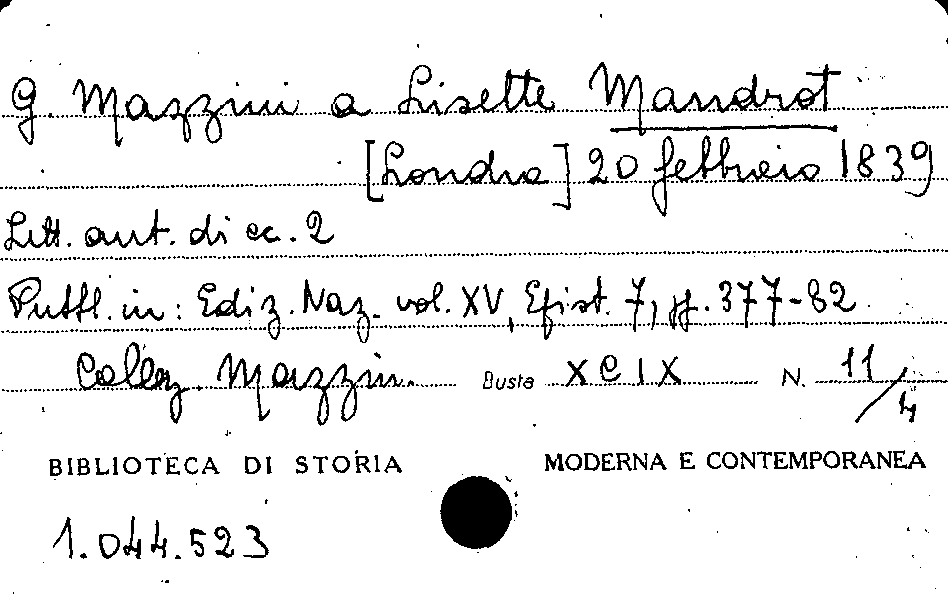 G. Mazzini a Lisette Mandrot
[Londra] 20 febbraio 1839
Lett. aut. di cc. 2
Pubbl. in: Ediz. Naz. vol. XV, Epist. 7, pp. 377-82
Collez. Mazzini. Busta XCIX N. 11/4
BIBLIOTECA DI STORIA MODERNA E CONTEMPORANEA
1.044.523